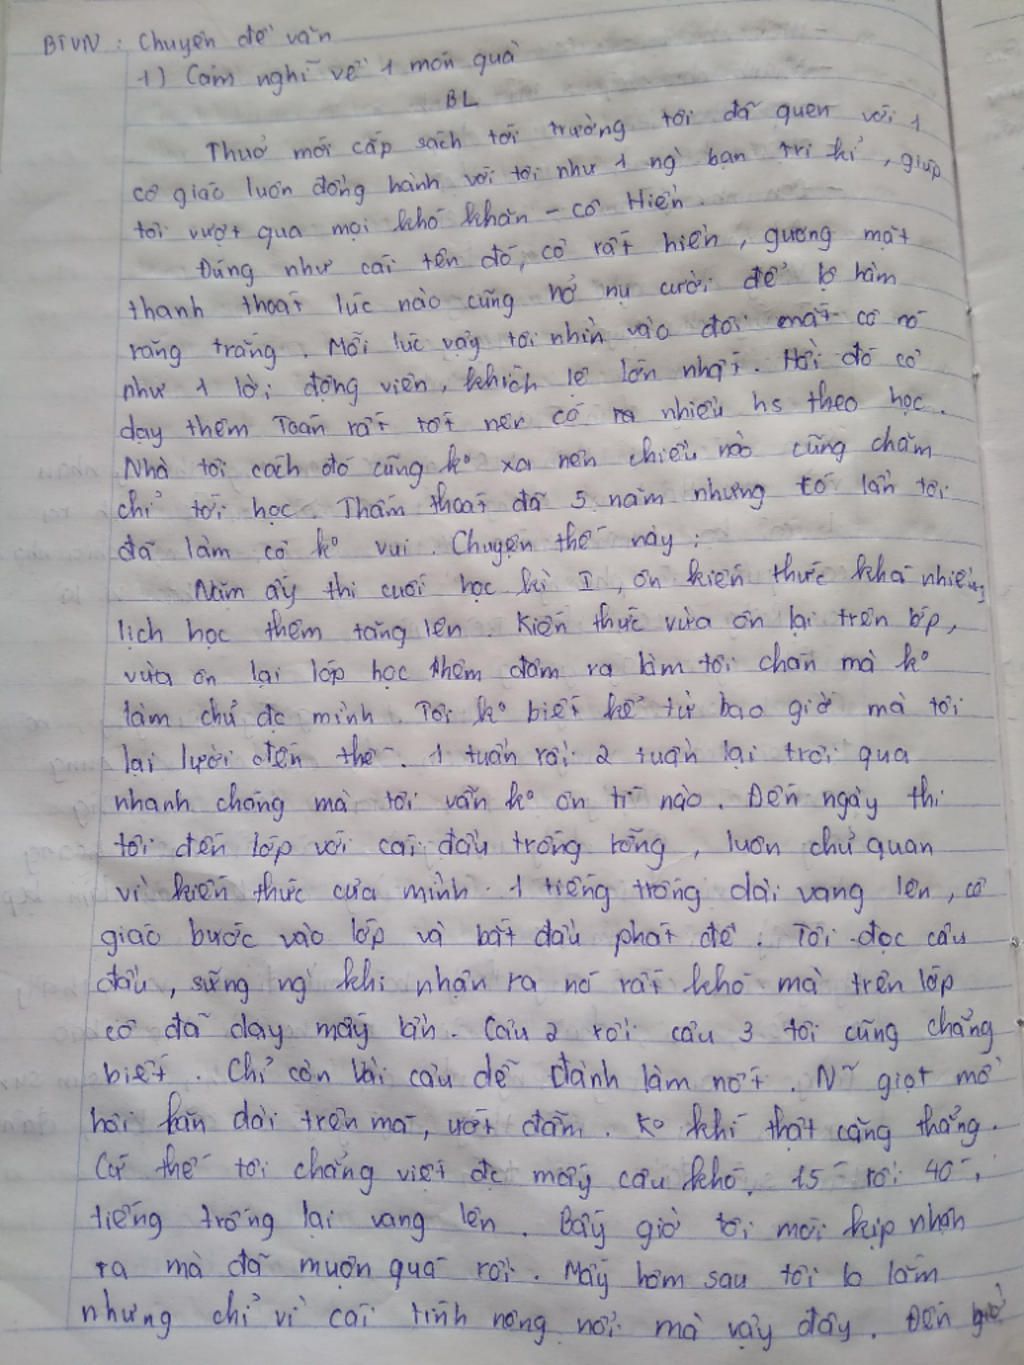 BTVN : Chuyên đề văn
1) Cảm nghĩ về 1 món quà
BL
Thuở mới cắp sách tới trường tôi đã quen với 1
cô giáo luôn đồng hành với tôi như 1 ng` bạn tri kỉ, giúp
tôi vượt qua mọi khó khăn - cô Hiền.
Đúng như cái tên đó, cô rất hiền, gương mặt
thanh thoát lúc nào cũng nở nụ cười để lộ hàm
răng trắng. Mỗi lúc vậy tôi nhìn vào đôi mắt cô nó
như 1 lời động viên, khích lệ lớn nhất. Hồi đó cô
dạy thêm Toán rất tốt nên có ra nhiều hs theo học.
Nhà tôi cách đó cũng ko xa nên chiều nào cũng chăm
chỉ tới học. Thấm thoát đã 5 năm nhưng có lần tôi
đã làm cô ko vui. Chuyện thế này :
Năm ấy thi cuối học kì I, ôn kiến thức khá nhiều,
lịch học thêm tăng lên. Kiến thức vừa ôn lại trên lớp,
vừa ôn lại lớp học thêm đâm ra làm tôi chán mà ko
làm chủ đc mình. Tôi ko biết kể từ bao giờ mà tôi
lại lười đến thế. 1 tuần rồi 2 tuần lại trôi qua
nhanh chóng mà tôi vẫn ko ôn tí nào. Đến ngày thi
tôi đến lớp với cái đầu trống rỗng, luôn chủ quan
vì kiến thức của mình. 1 tiếng trống dài vang lên, cô
giáo bước vào lớp và bắt đầu phát đề. Tôi đọc câu
đầu, sững ng` khi nhận ra nó rất khó mà trên lớp
cô đã dạy mấy lần. Câu 2 rồi câu 3 tôi cũng chẳng
biết. Chỉ còn vài câu dễ đành làm nốt. N~ giọt mồ
hôi lăn dài trên má, ướt đẫm. Ko khí thật căng thẳng.
Cứ thế tôi chẳng viết đc mấy câu khó. 15' rồi 40',
tiếng trống lại vang lên. Bây giờ tôi mới kịp nhận
ra mà đã muộn quá rồi. Mấy hôm sau tôi lo lắm
nhưng chỉ vì cái tính nông nổi mà vậy đấy. Đến giờ